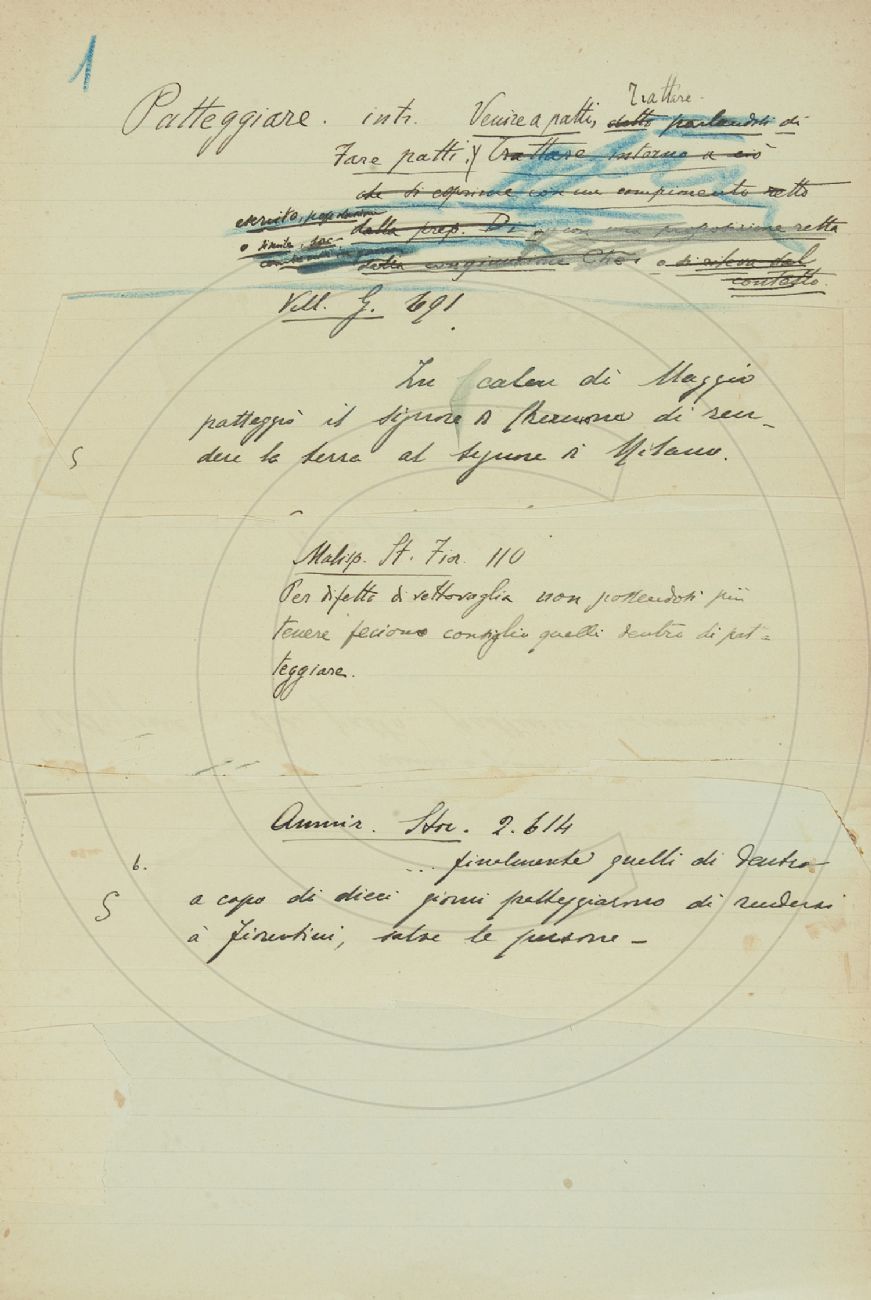 1
Trattare.
Patteggiare. intr. Venire a patti, detto parlandosi di
Fare patti. Trattare intorno a ciò
che si esprime con un compimento retto
esercito, popolazione
dalla prep. Di o con una proposizione retta
o simile,
dalla congiunzione Che o si rileva dal
contesto.
Vill. G. 691
In calen di Maggio
patteggiò il signore di Chermona di ren-
dere la terra al signore di Milano.
Malisp. St. Fior. 110
Per difetto di vettovaglia non possendosi più
tenere feciono consiglio quelli dentro di pat-
teggiare.
Ammir. Stor. 2. 614
6. ... finalmente quelli di dentro
a capo di dieci giorni patteggiarono di rendersi
a' Fiorentini, salve le persone -